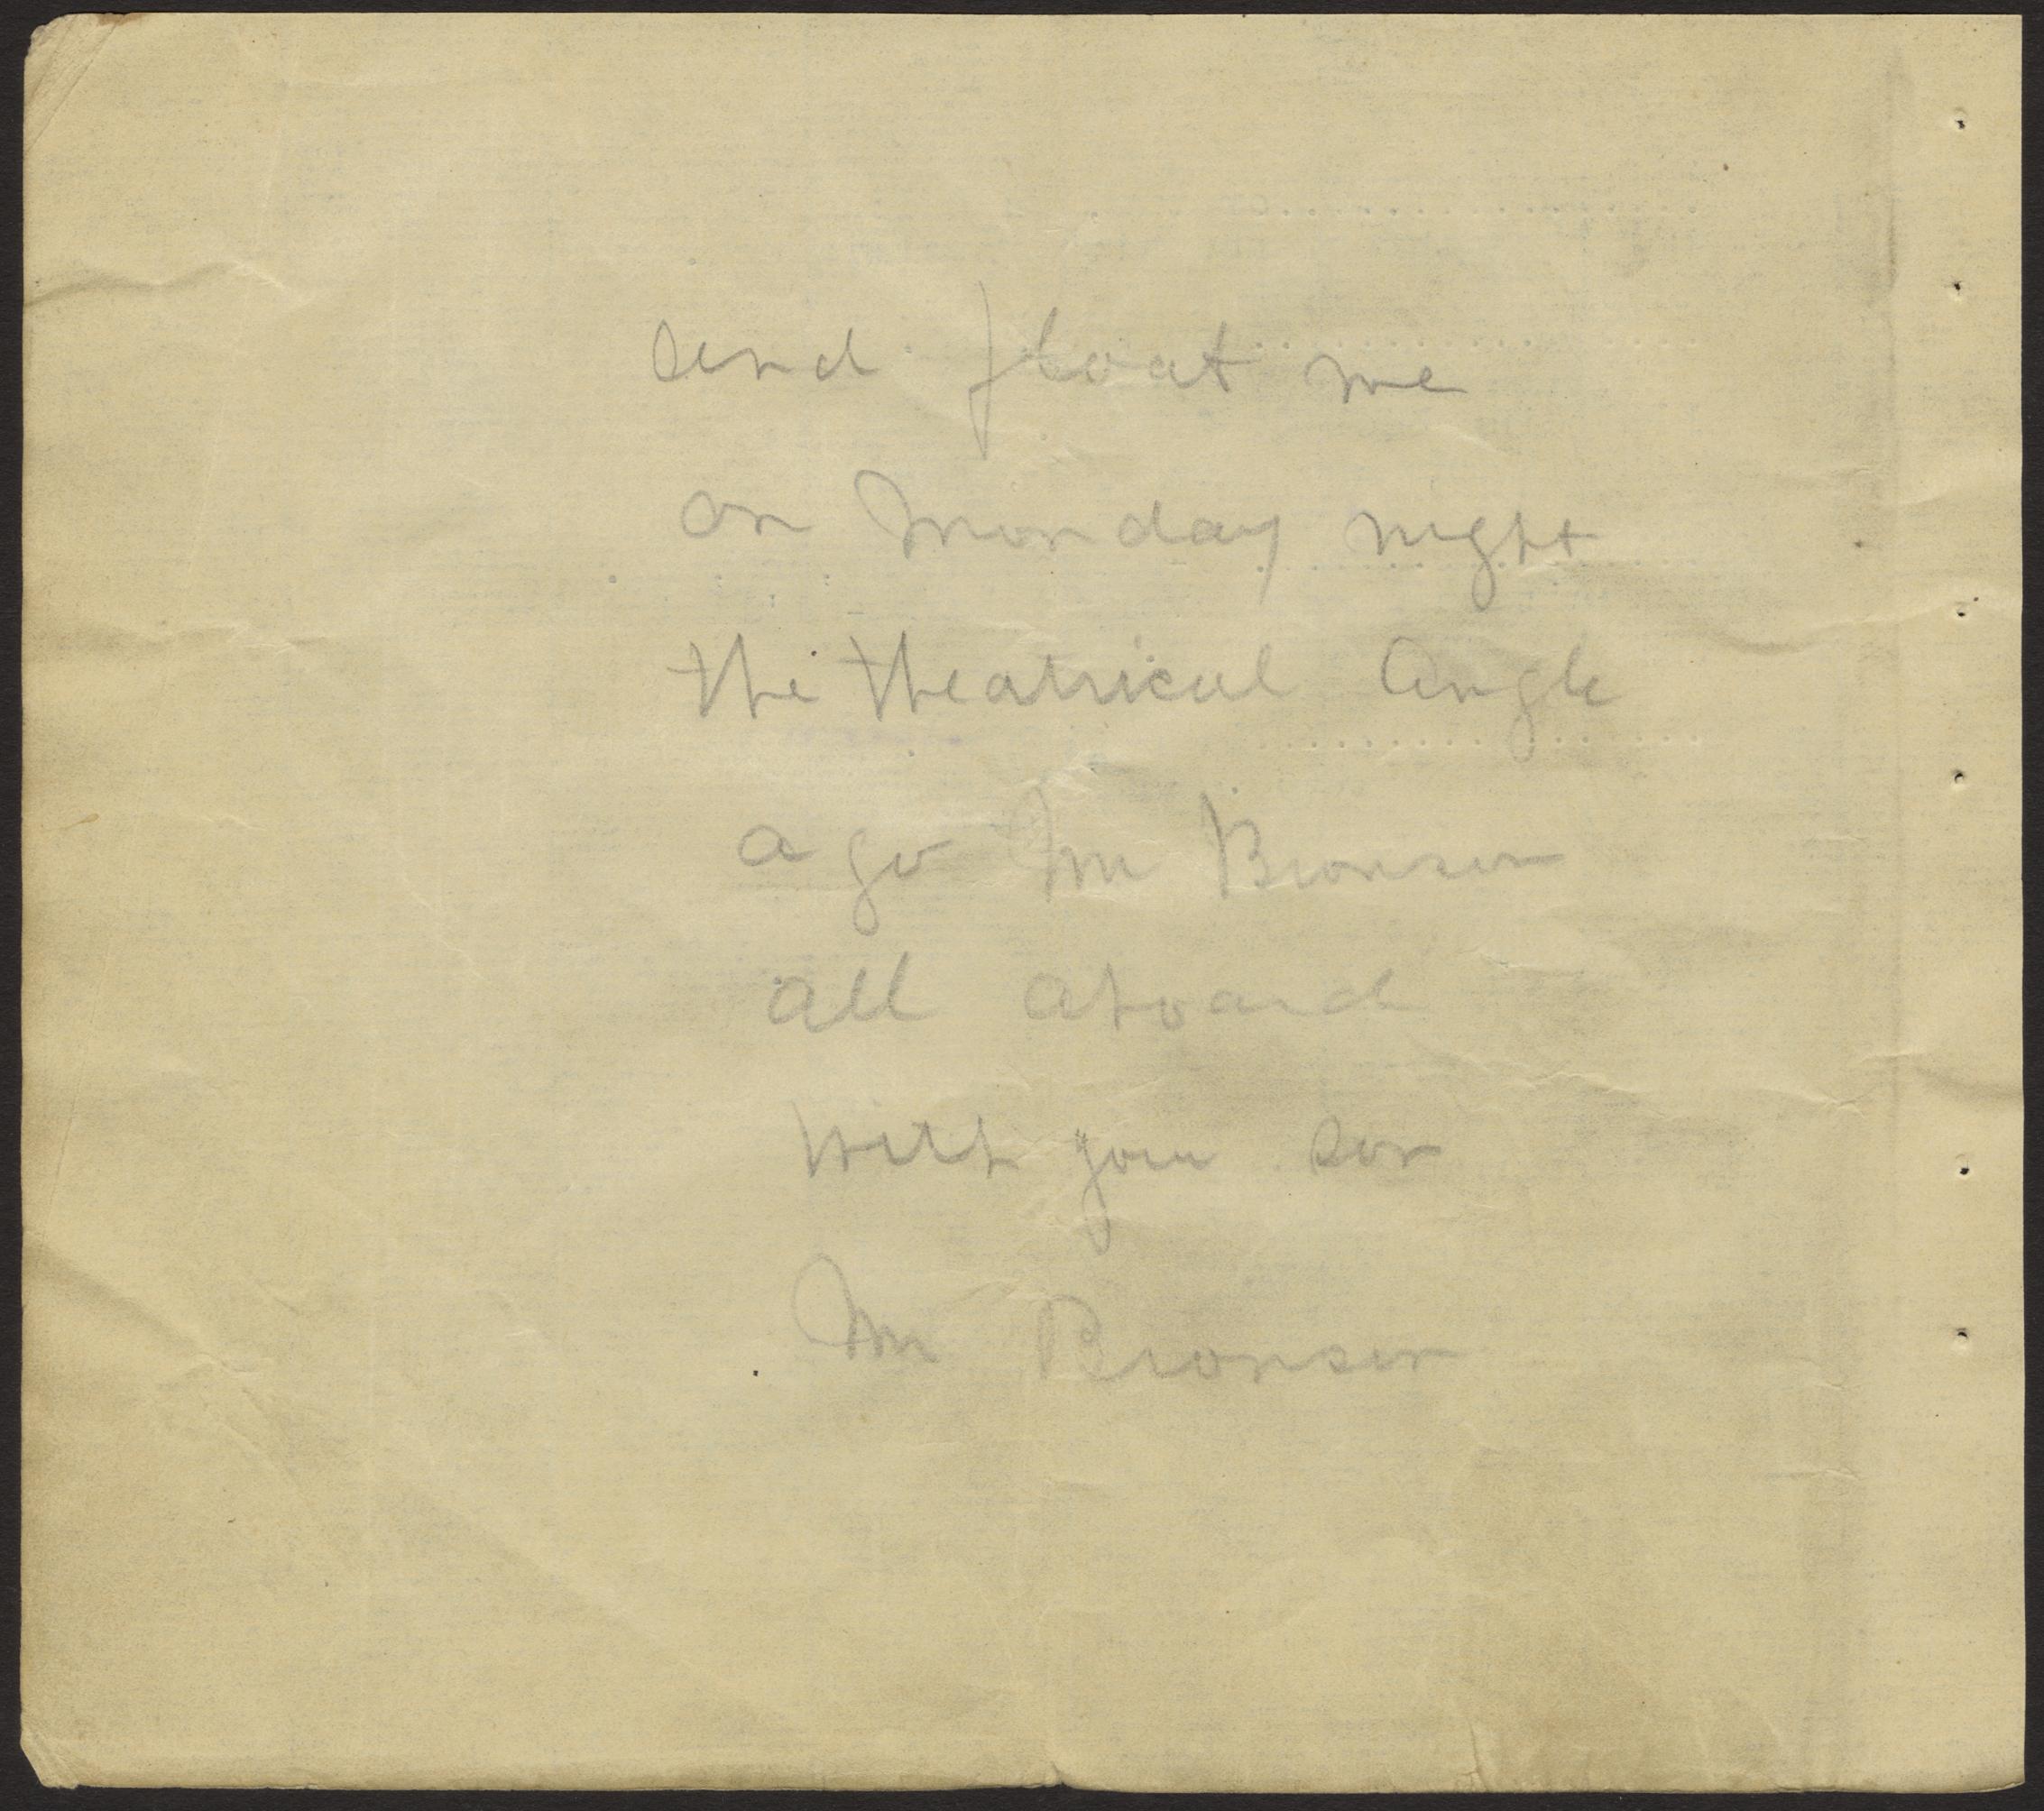 send float me
on Monday night
the theatrical Angle
ago Mr Bronson
all aboard
with you son
Mr Bronson